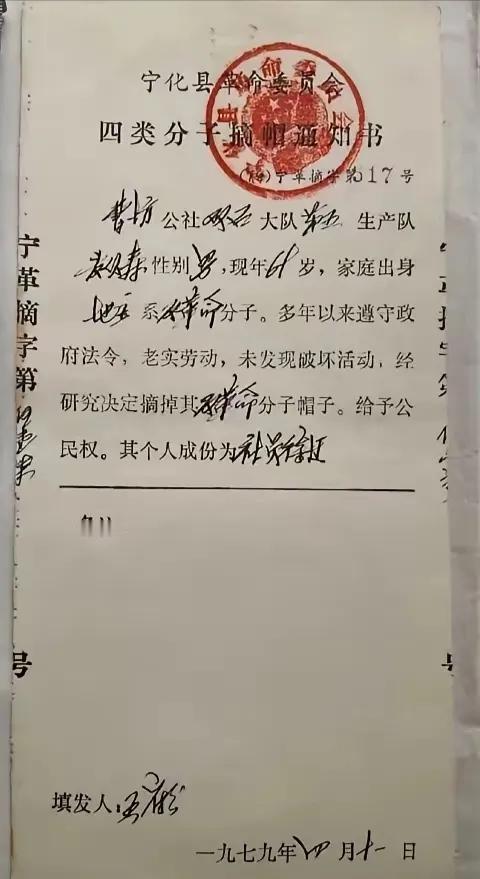 宁化县革命委员会
四类分子摘帽通知书
宁革摘字第17号
曹坊公社双石大队第五生产队
性别男，现年61岁，家庭出身
地主系反革命分子。多年以来遵守政
府法令，老实劳动，未发现破坏活动，经
研究决定摘掉其反革命分子帽子。给予公
民权。其个人成份为社员
填发人：
一九七九年四月十一日
宁革摘字第
号